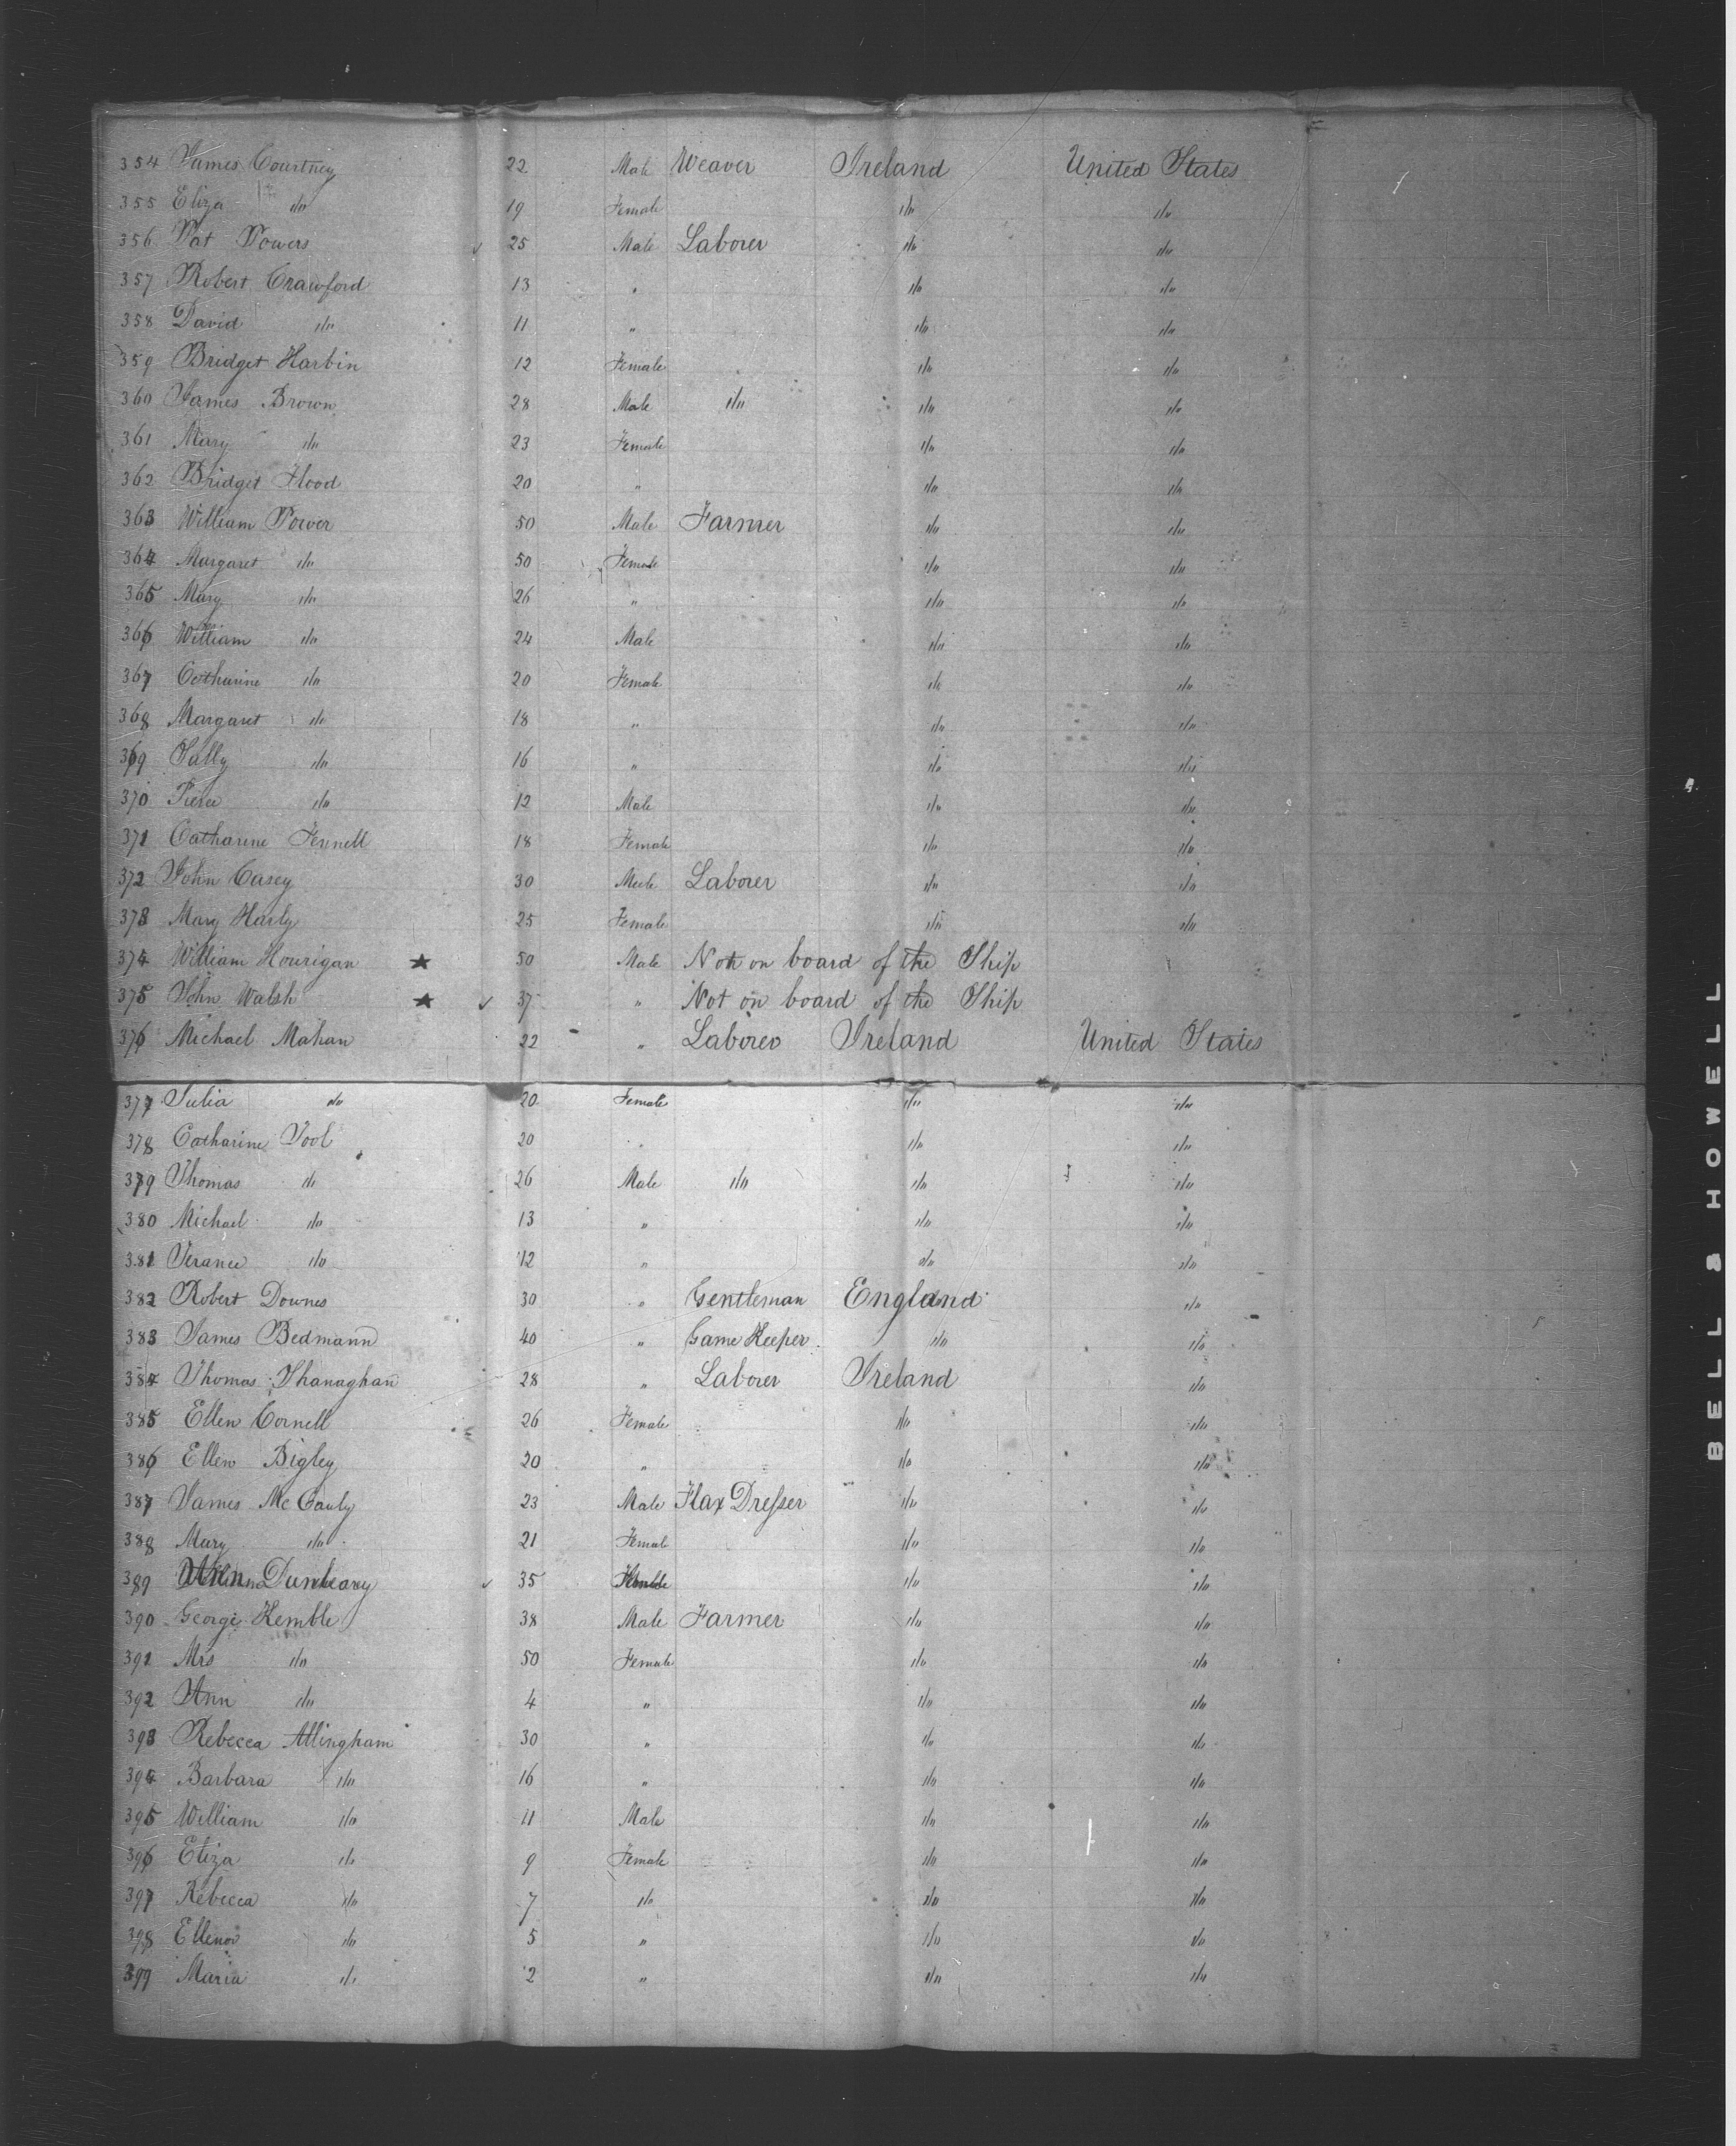 354 James Courtney 22 Male Weaver Ireland United States
355 Eliza do 19 Female do do
356 Pat Powers 25 Male Laborer do do
357 Robert Crawford 13 " do do
358 David do 11 " do do
359 Bridget Harbin 12 Female do do
360 James Brown 28 Male do do do
361 Mary do 23 Female do do
362 Bridget Flood 20 " do do
363 William Power 50 Male Farmer do do
364 Margaret do 50 Female do do
365 Mary do 26 " do do
366 William do 24 Male do do
367 Catharine do 20 Female do do
368 Margaret do 18 " do do
369 Sally do 16 " do do
370 Pierce do 12 Male do do
371 Catharine Fennell 18 Female do do
372 John Casey 30 Male Laborer do do
373 Mary Harly 25 Female do do
374 William Hourigan ★ 50 Male Not on board of the Ship
375 John Walsh ★ 37 " Not on board of the Ship
376 Michael Mahan 22 " Laborer Ireland United States
377 Julia do 20 Female do do
378 Catharine Tool 20 " do do
379 Thomas do 26 Male do do do
380 Michael do 13 " do do
381 Terance do 12 " do do
382 Robert Downes 30 " Gentleman England do
383 James Bedmann 40 " Game Keeper do do
384 Thomas Shanaghan 28 " Laborer Ireland do
385 Ellen Cornell 26 Female do do
386 Ellen Bigley 20 " do do
387 James McCauly 23 Male Flax Dresser do do
388 Mary do 21 Female do do
389 Ann 35 do do
390 George Kemble 38 Male Farmer do do
391 Mrs do 50 Female do do
392 Ann do 4 " do do
393 Rebecca Allingham 30 " do do
394 Barbara do 16 " do do
395 William do 11 Male do do
396 Eliza do 9 Female do do
397 Rebecca do 7 do do do
398 Ellenor do 5 " do do
399 Maria do 2 " do do
BELL & HOWELL